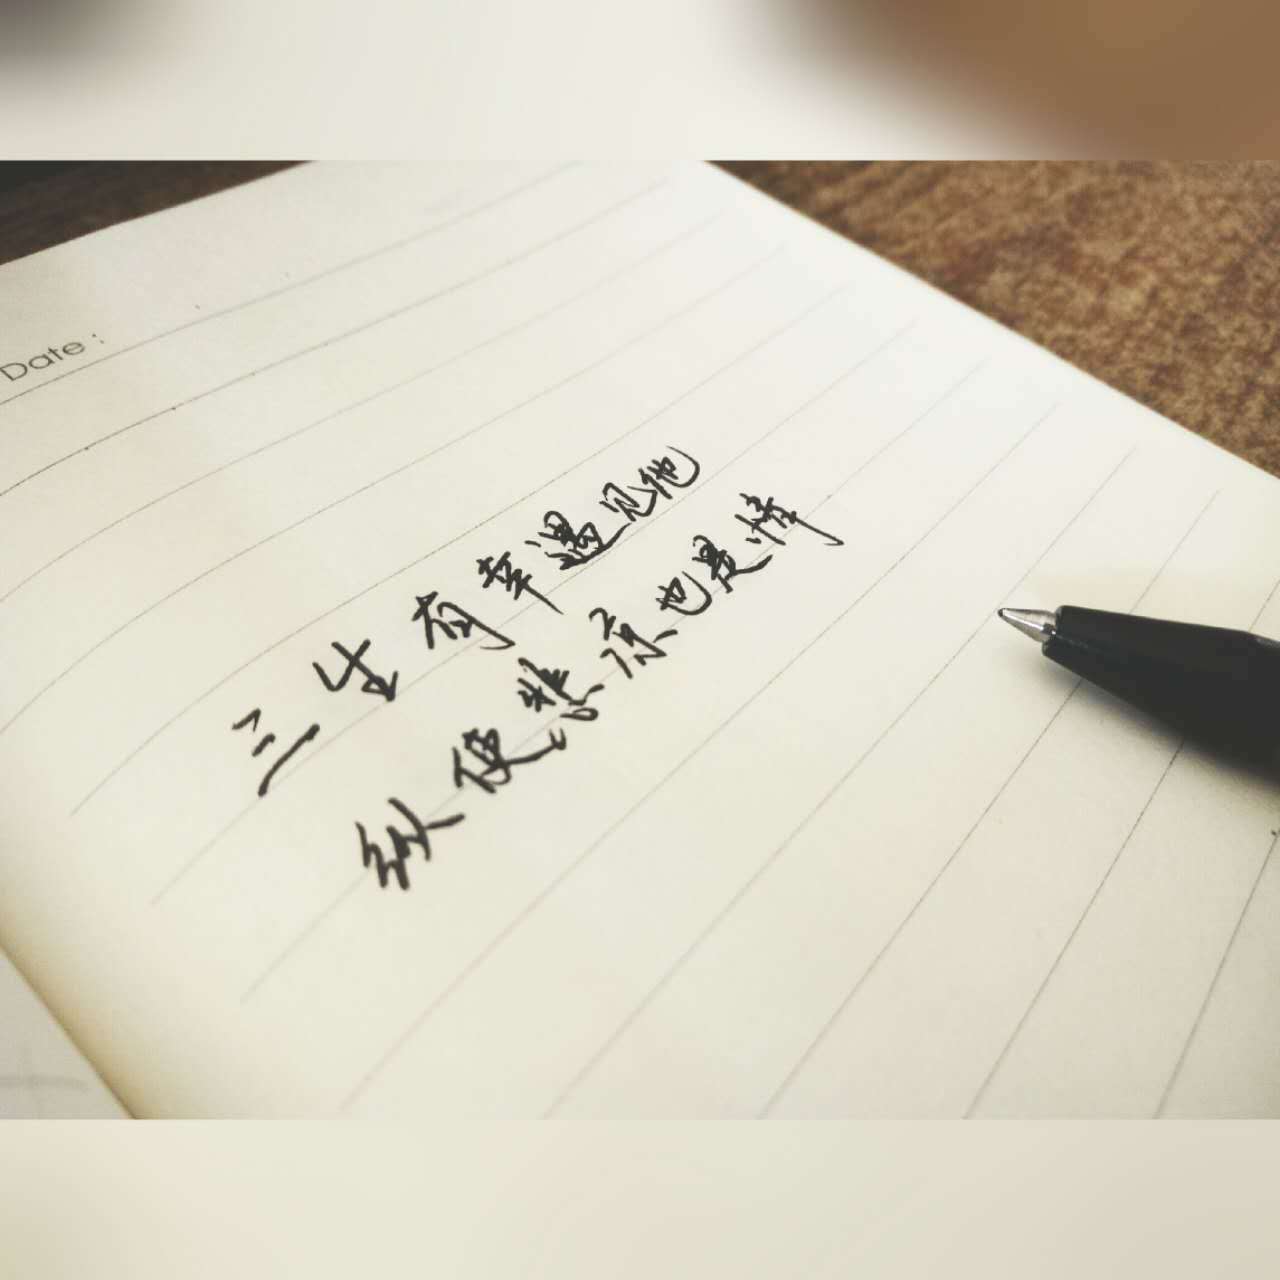 Date:
三生有幸遇见他
纵使悲凉也是情